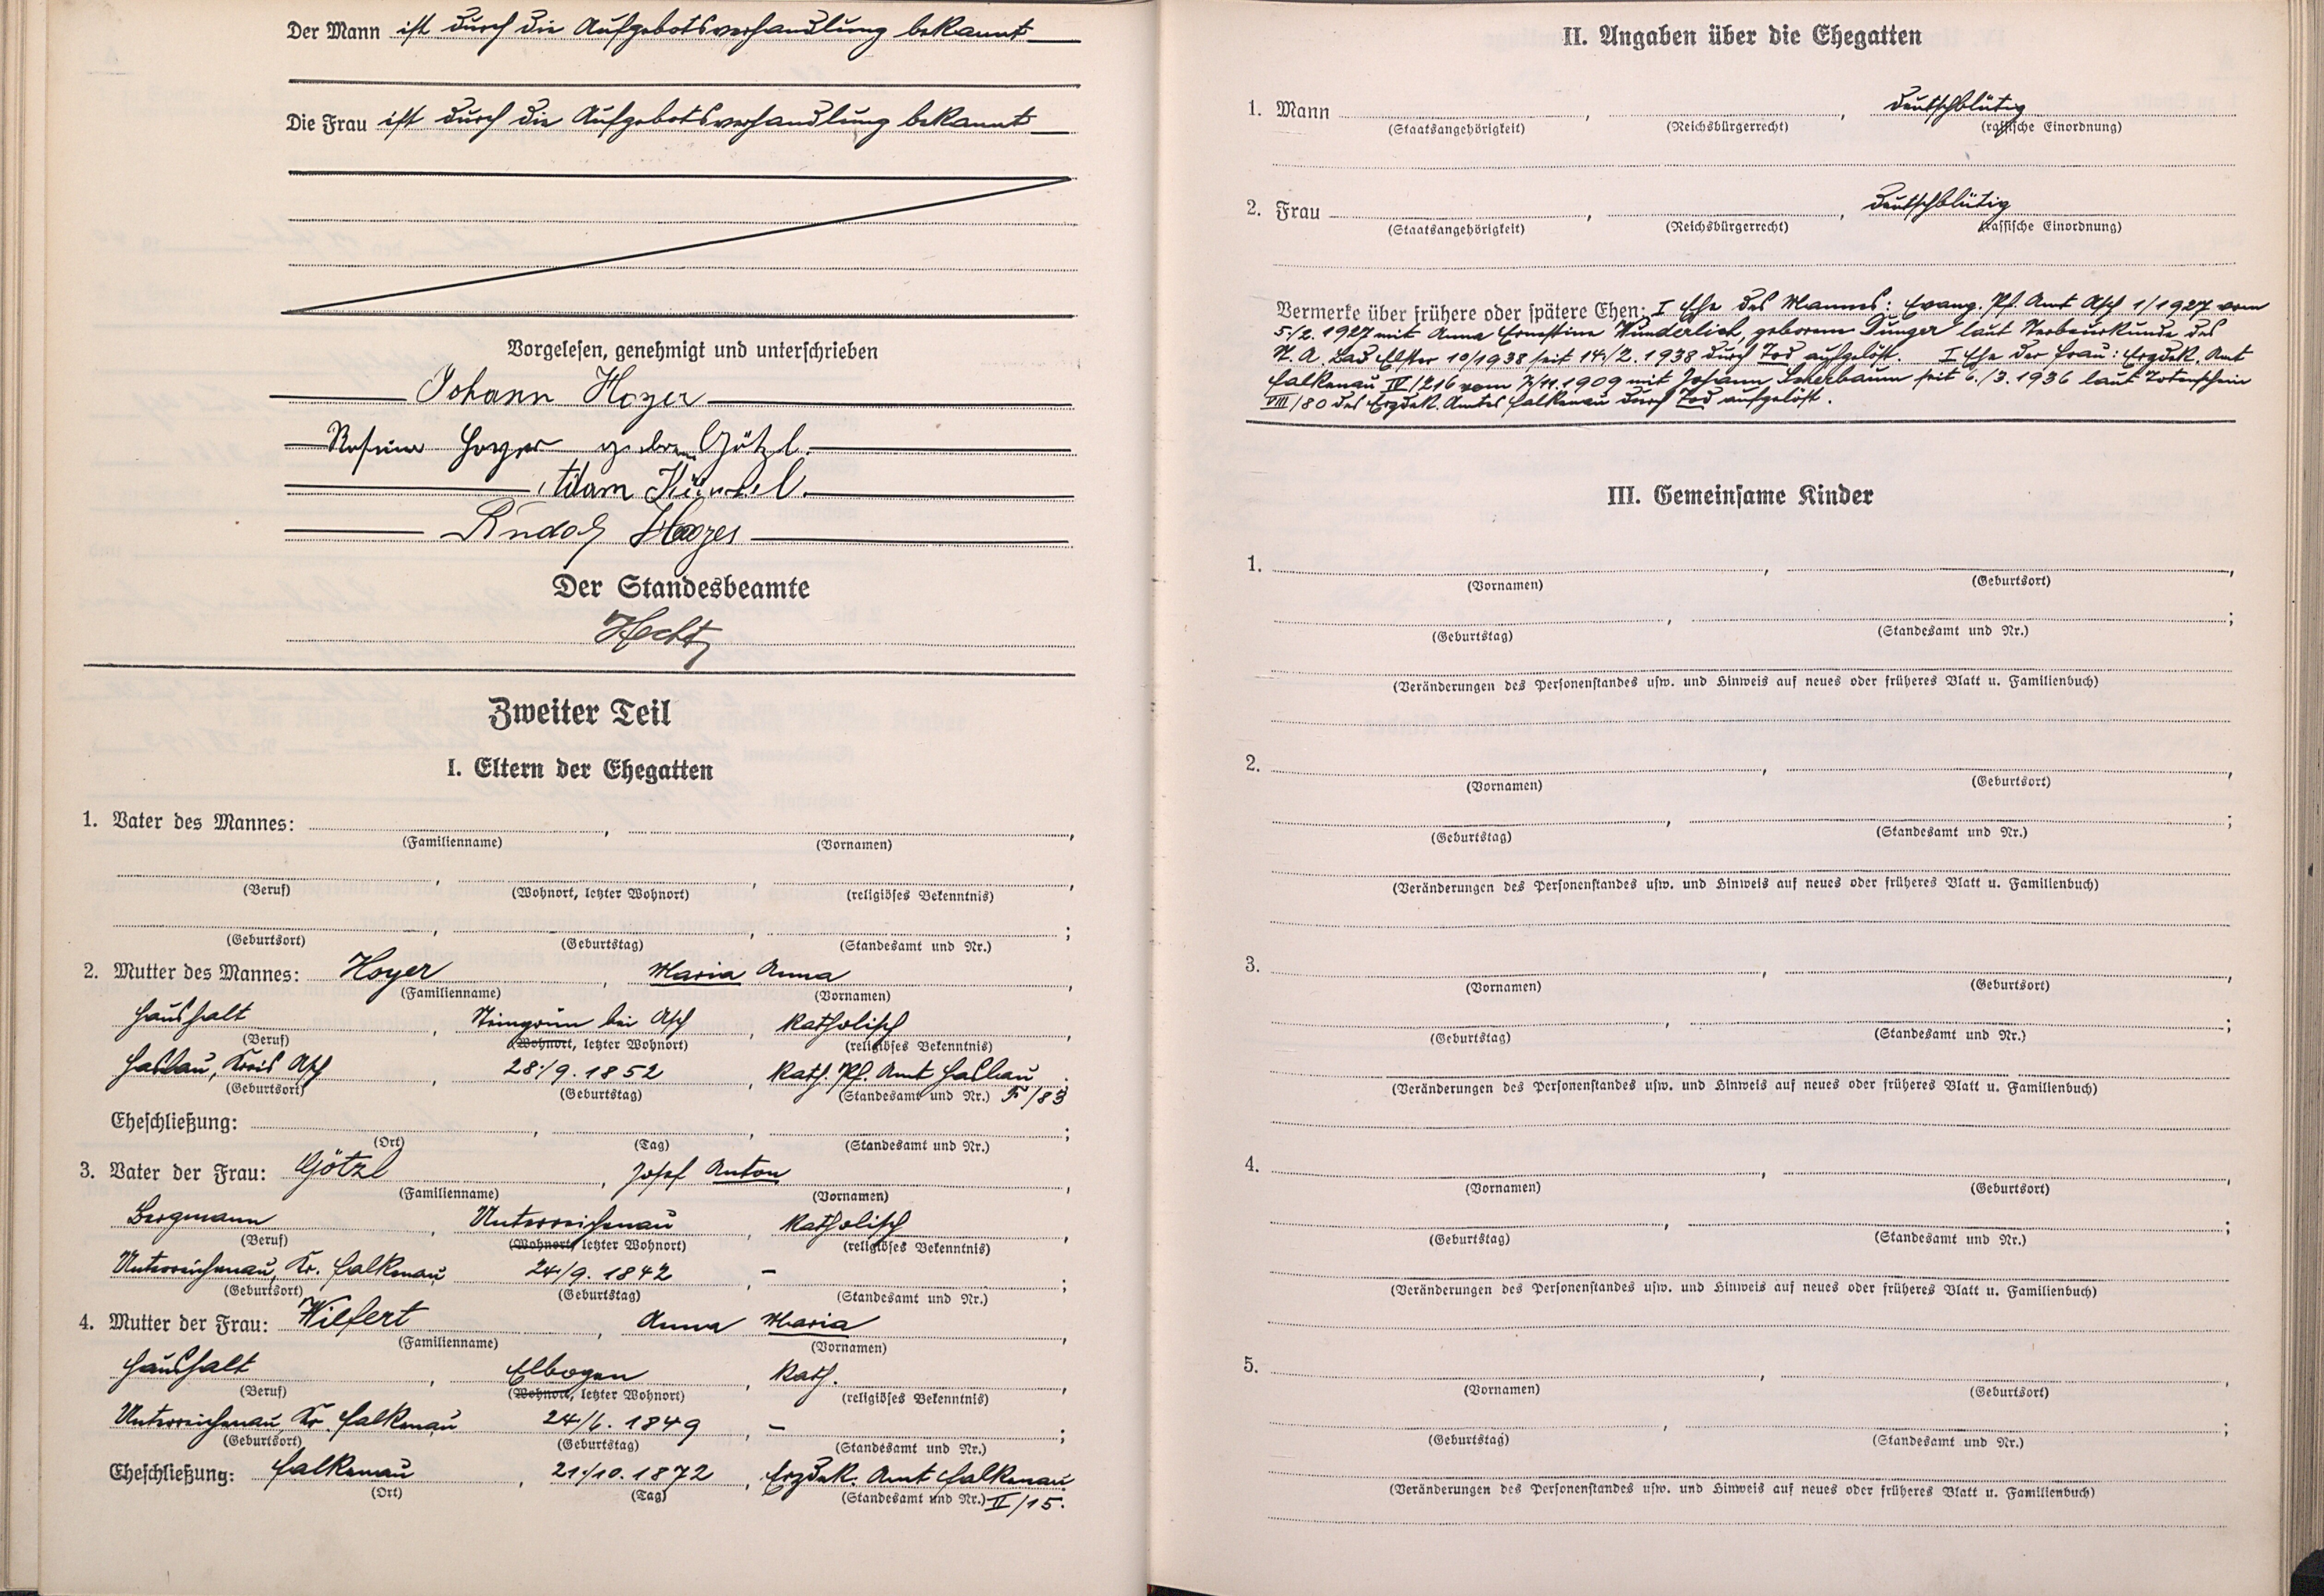 Der Mann ist durch die Aufgebotsverhandlung bekannt
Die Frau ist durch die Aufgebotsverhandlung bekannt
Vorgelesen, genehmigt und unterschrieben
Johann Hoyer
Rosina Hoyer geboren Götzl.
Adam Künzel.
Rudolf Hoyer
Der Standesbeamte
Hecht
Zweiter Teil
I. Eltern der Ehegatten
1. Vater des Mannes: , ,
(Familienname) (Vornamen)
, , ,
(Beruf) (Wohnort, letzter Wohnort) (religiöses Bekenntnis)
, , ;
(Geburtsort) (Geburtstag) (Standesamt und Nr.)
2. Mutter des Mannes: Hoyer , Maria Anna ,
(Familienname) (Vornamen)
Haushalt , Neingrün bei Asch , katholisch ,
(Beruf) (Wohnort, letzter Wohnort) (religiöses Bekenntnis)
Haslau, Kreis Asch , 28./9. 1852 , Kath. Pf. Amt Haslau ;
(Geburtsort) (Geburtstag) (Standesamt und Nr.) F/83
Eheschließung: , , ;
(Ort) (Tag) (Standesamt und Nr.)
3. Vater der Frau: Götzl , Josef Anton ,
(Familienname) (Vornamen)
Bergmann , Unterreichenau , katholisch ,
(Beruf) (Wohnort, letzter Wohnort) (religiöses Bekenntnis)
Unterreichenau, Kr. Falkenau 24./9. 1842 , – ;
(Geburtsort) (Geburtstag) (Standesamt und Nr.)
4. Mutter der Frau: Wilfert , Anna Maria ,
(Familienname) (Vornamen)
Haushalt , Elbogen , kath. ,
(Beruf) (Wohnort, letzter Wohnort) (religiöses Bekenntnis)
Unterreichenau, Kr. Falkenau 24./6. 1849 , – ;
(Geburtsort) (Geburtstag) (Standesamt und Nr.)
Eheschließung: Falkenau , 21./10. 1872 , Erzdek. Amt Falkenau
(Ort) (Tag) (Standesamt und Nr.) II/15.
II. Angaben über die Ehegatten
1. Mann , , deutschblütig
(Staatsangehörigkeit) (Reichsbürgerrecht) (rassische Einordnung)
2. Frau , , deutschblütig
(Staatsangehörigkeit) (Reichsbürgerrecht) (rassische Einordnung)
Vermerke über frühere oder spätere Ehen: I Ehe des Mannes: Evang. Pf. Amt Asch 1/1927 vom
5./2. 1927 mit Anna Ernestine Wunderlich, geborene Dunger laut Sterbeurkunde des
St. A. Bad Elster 10/1938 seit 14./2. 1938 durch Tod aufgelöst. I Ehe der Frau: Erzdek. Amt
Falkenau IV/216 vom 7/11. 1909 mit Johann seit 6./3. 1936 laut Totenschein
VIII/80 des Erzdek. Amtes Falkenau durch Tod aufgelöst.
III. Gemeinsame Kinder
1. , ,
(Vornamen) (Geburtsort)
, ;
(Geburtstag) (Standesamt und Nr.)
(Veränderungen des Personenstandes usw. und Hinweis auf neues oder früheres Blatt u. Familienbuch)
2. , ,
(Vornamen) (Geburtsort)
, ;
(Geburtstag) (Standesamt und Nr.)
(Veränderungen des Personenstandes usw. und Hinweis auf neues oder früheres Blatt u. Familienbuch)
3. , ,
(Vornamen) (Geburtsort)
, ;
(Geburtstag) (Standesamt und Nr.)
(Veränderungen des Personenstandes usw. und Hinweis auf neues oder früheres Blatt u. Familienbuch)
4. , ,
(Vornamen) (Geburtsort)
, ;
(Geburtstag) (Standesamt und Nr.)
(Veränderungen des Personenstandes usw. und Hinweis auf neues oder früheres Blatt u. Familienbuch)
5. , ,
(Vornamen) (Geburtsort)
, ;
(Geburtstag) (Standesamt und Nr.)
(Veränderungen des Personenstandes usw. und Hinweis auf neues oder früheres Blatt u. Familienbuch)